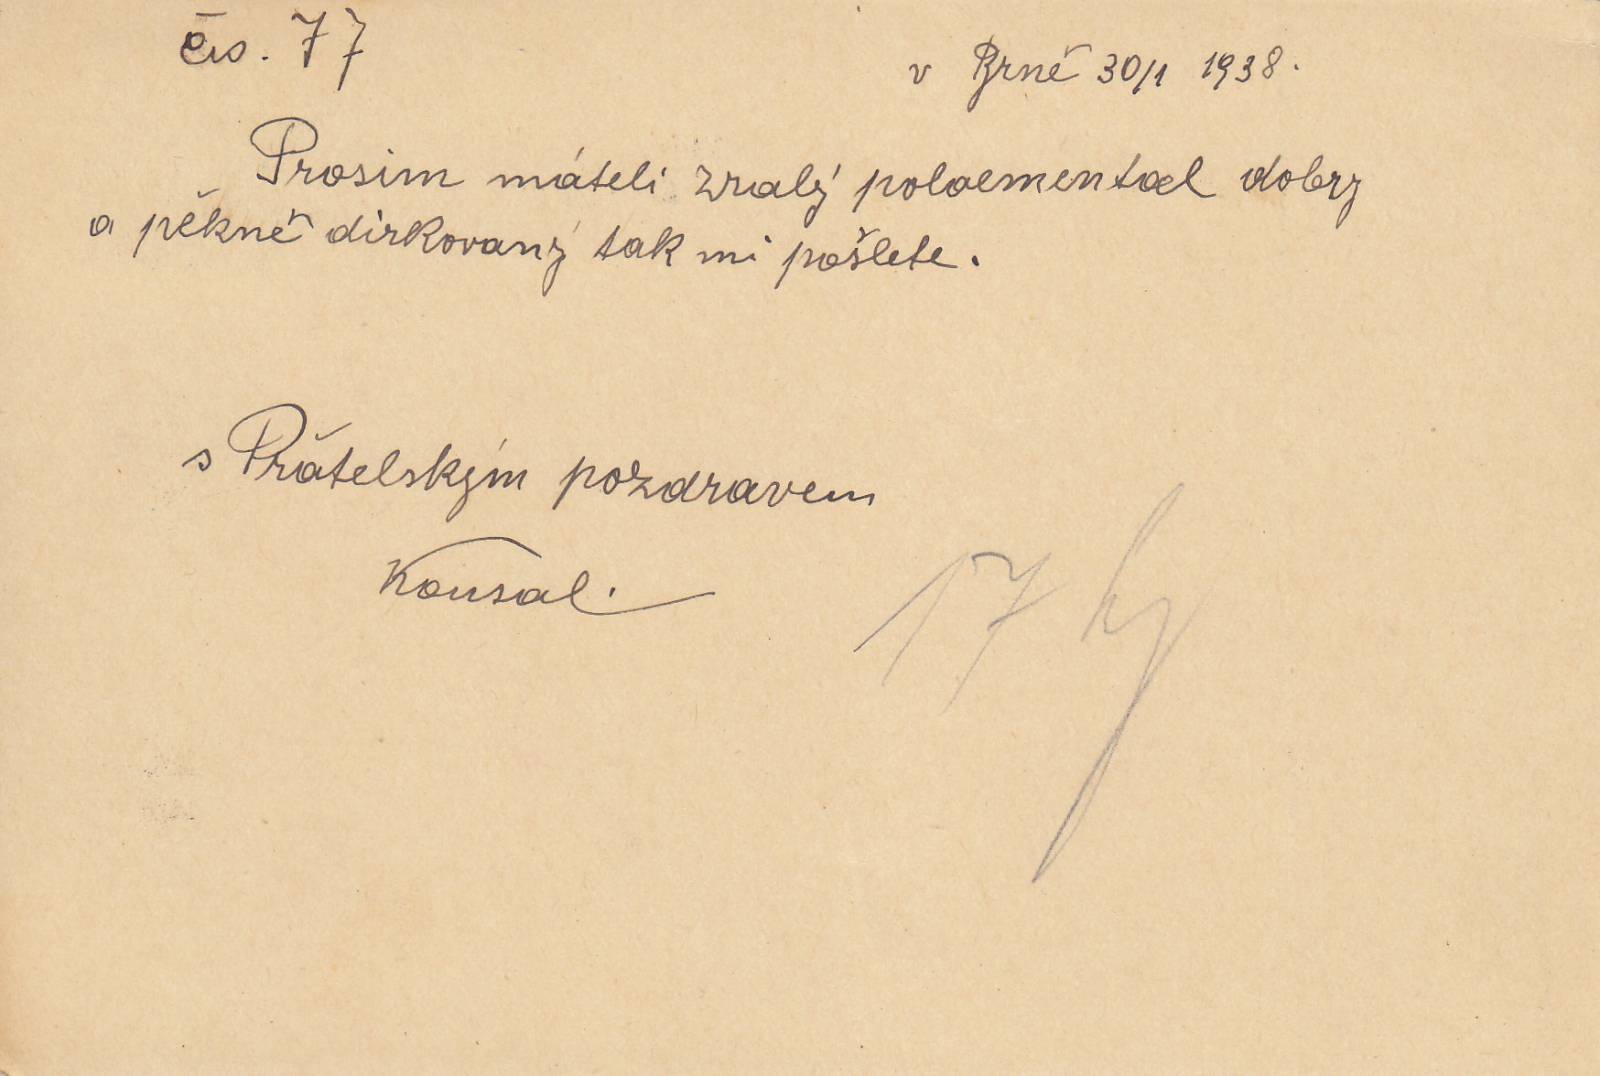 čis. 77
v Brně 30/1 1938.
Prosim máteli zralý poloementael dobry
a pěkně dirkovaný tak mi pošlete.
s Přátelským pozdravem
Kousal.
17 kg